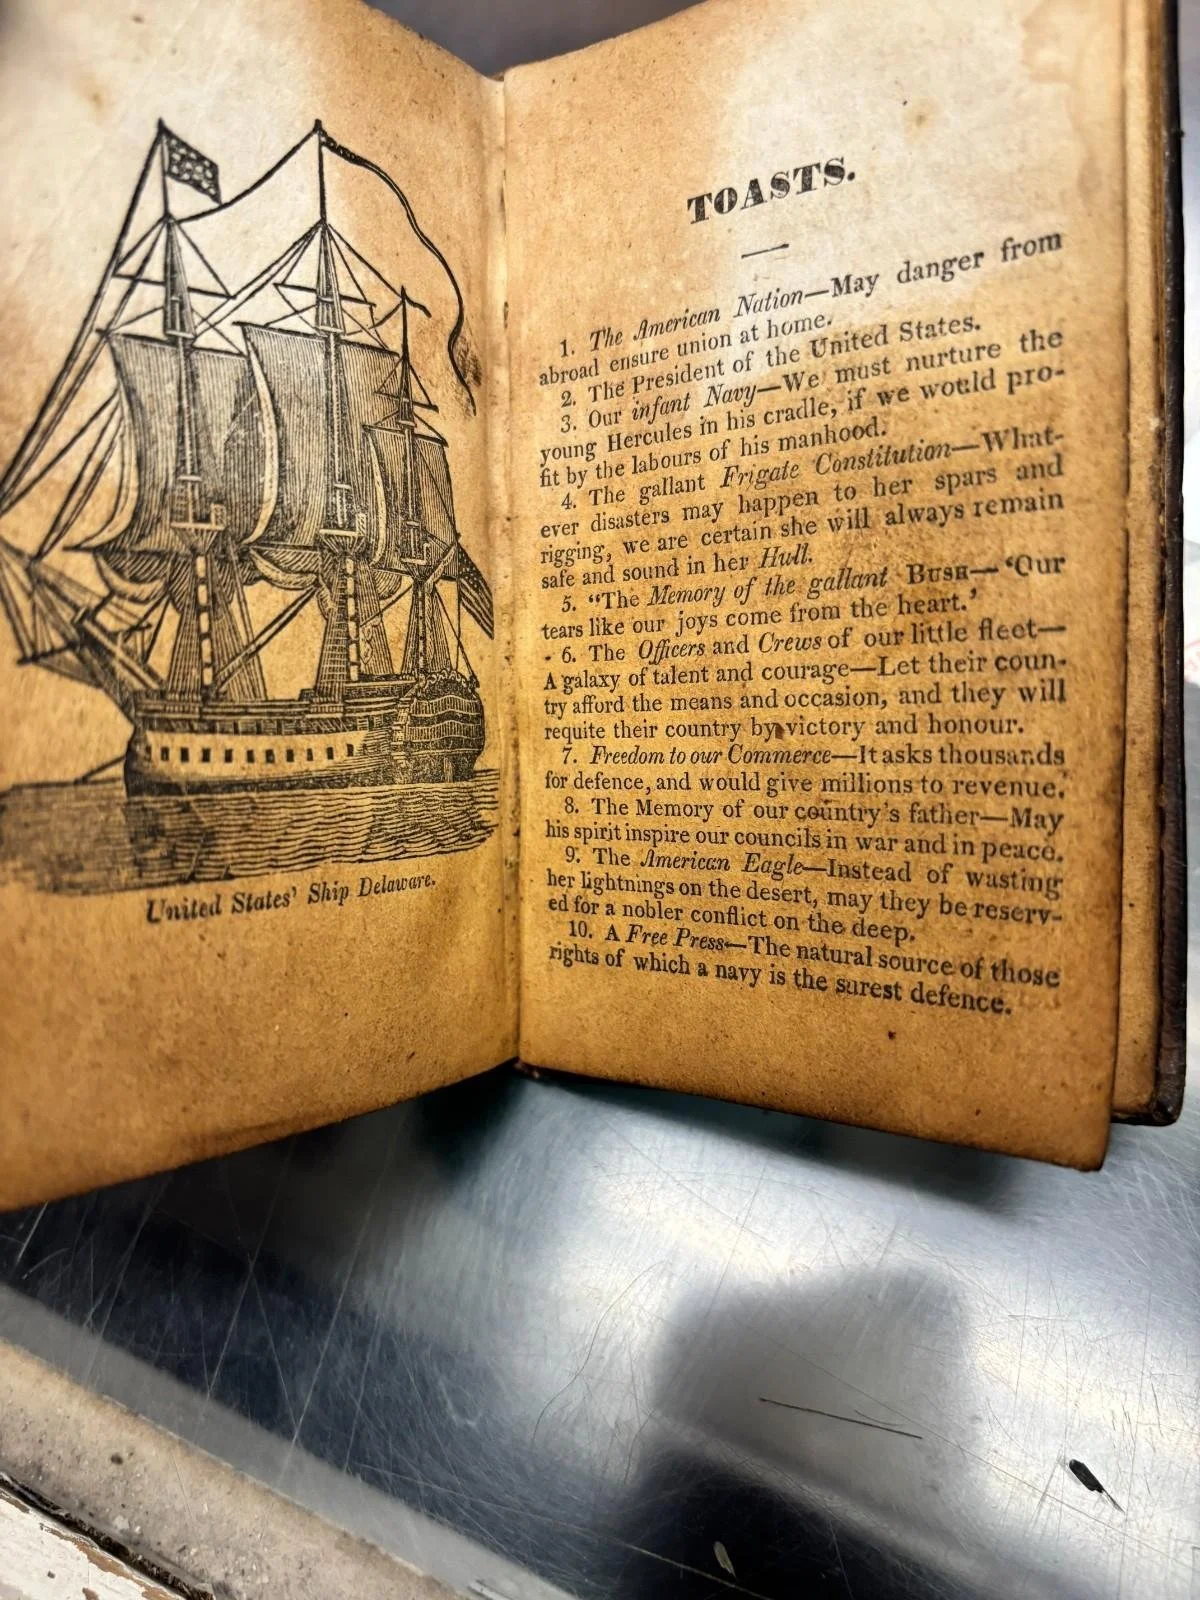 United States' Ship Delaware.
TOASTS.
1. The American Nation—May danger from
abroad ensure union at home.
2. The President of the United States.
3. Our infant Navy—We must nurture the
young Hercules in his cradle, if we would pro-
fit by the labours of his manhood.
4. The gallant Frigate Constitution—What-
ever disasters may happen to her spars and
rigging, we are certain she will always remain
safe and sound in her Hull.
5. "The Memory of the gallant BUSH—'Our
tears like our joys come from the heart.'
6. The Officers and Crews of our little fleet—
A galaxy of talent and courage—Let their coun-
try afford the means and occasion, and they will
requite their country by victory and honour.
7. Freedom to our Commerce—It asks thousands
for defence, and would give millions to revenue.
8. The Memory of our country's father—May
his spirit inspire our councils in war and in peace.
9. The American Eagle—Instead of wasting
her lightnings on the desert, may they be reserv-
ed for a nobler conflict on the deep.
10. A Free Press—The natural source of those
rights of which a navy is the surest defence.